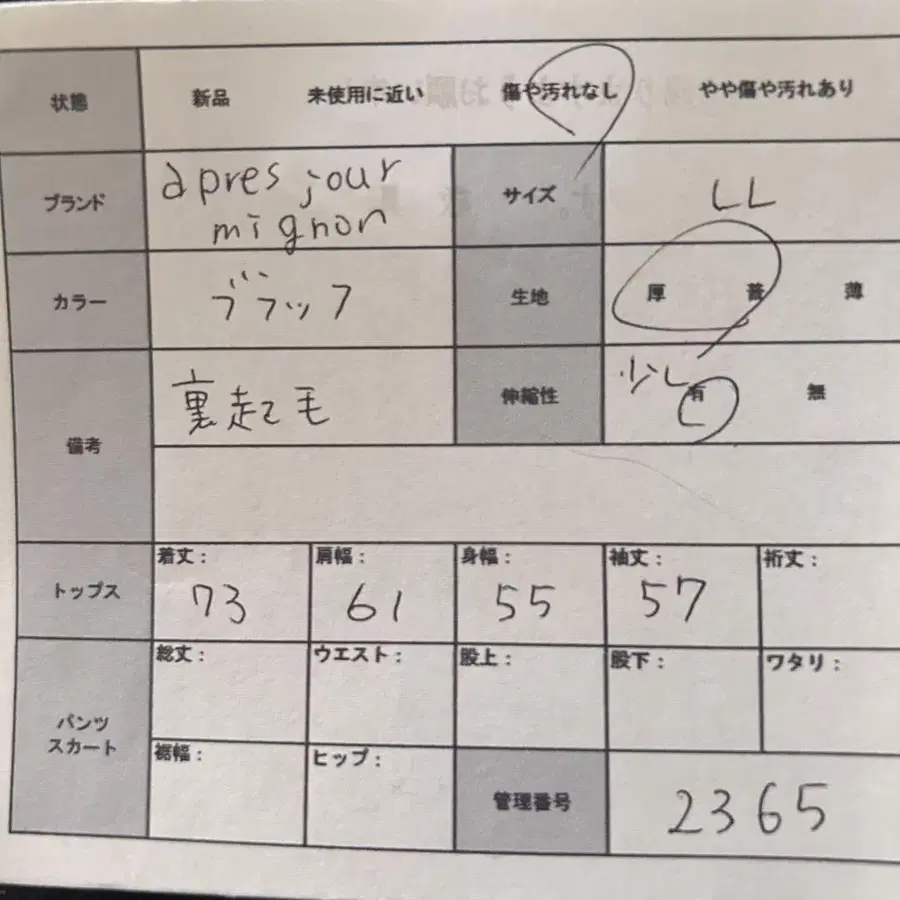 状態 新品 未使用に近い 傷や汚れなし やや傷や汚れあり
ブランド apres jour サイズ LL
mignon
カラー ブラック 生地 厚 普 薄
備考 裏起モ 伸縮性 少し 有 無
トップス 着丈： 73 肩幅： 61 身幅： 55 袖丈： 57 裄丈：
パンツ
スカート
総丈： ウエスト： 股上： 股下： ワタリ：
裾幅： ヒップ： 管理番号 2365